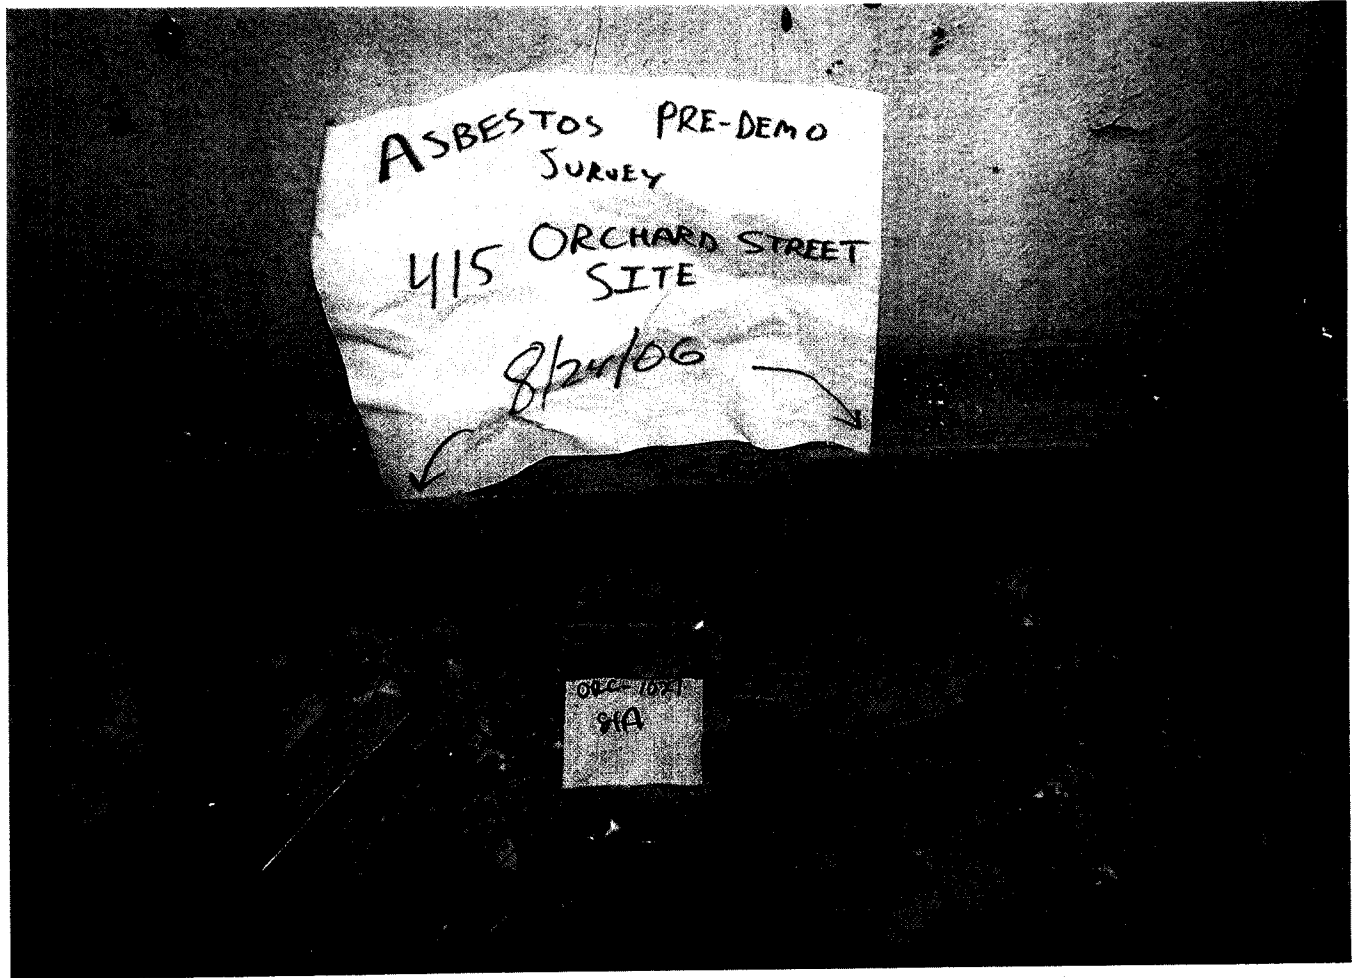 ASBESTOS PRE-DEMO
SURVEY
415 ORCHARD STREET
SITE
8/24/06